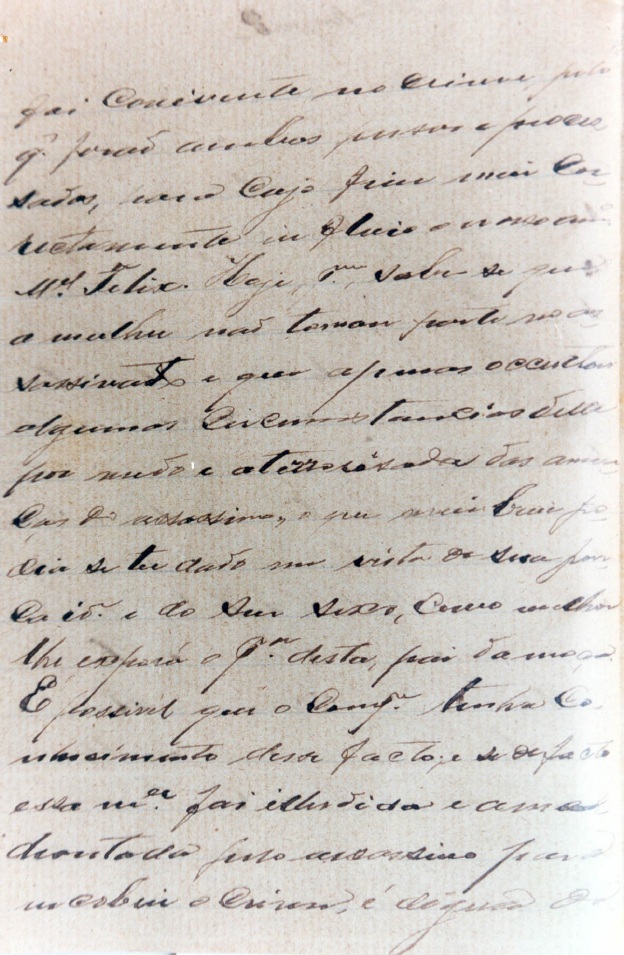 foi conivente no crime, pelo
q̃ forão ambos presos e proces
sados, para cujo fim mui Cor
rectamente influio o nosso am.º
M.el Felix. Hoje, p.m, sabe-se que
a mulher não tomou parte no as
sassinato e que apenas occultou
algumas circumstancias delle
por medo e aterrorisada das amea
ças do assassino, o que mui bem po
dia se ter dado em vista de sua pou
ca id.e e do seu sexo, como melhor
lhe exporá o p.or desta, pai da moça.
É possivel que o Comp.e tenha Co
nhecimento desse facto; e se de facto
essa m.er foi illudida e ame
drontada pelo assassino para
encobrir o crime, é digna de